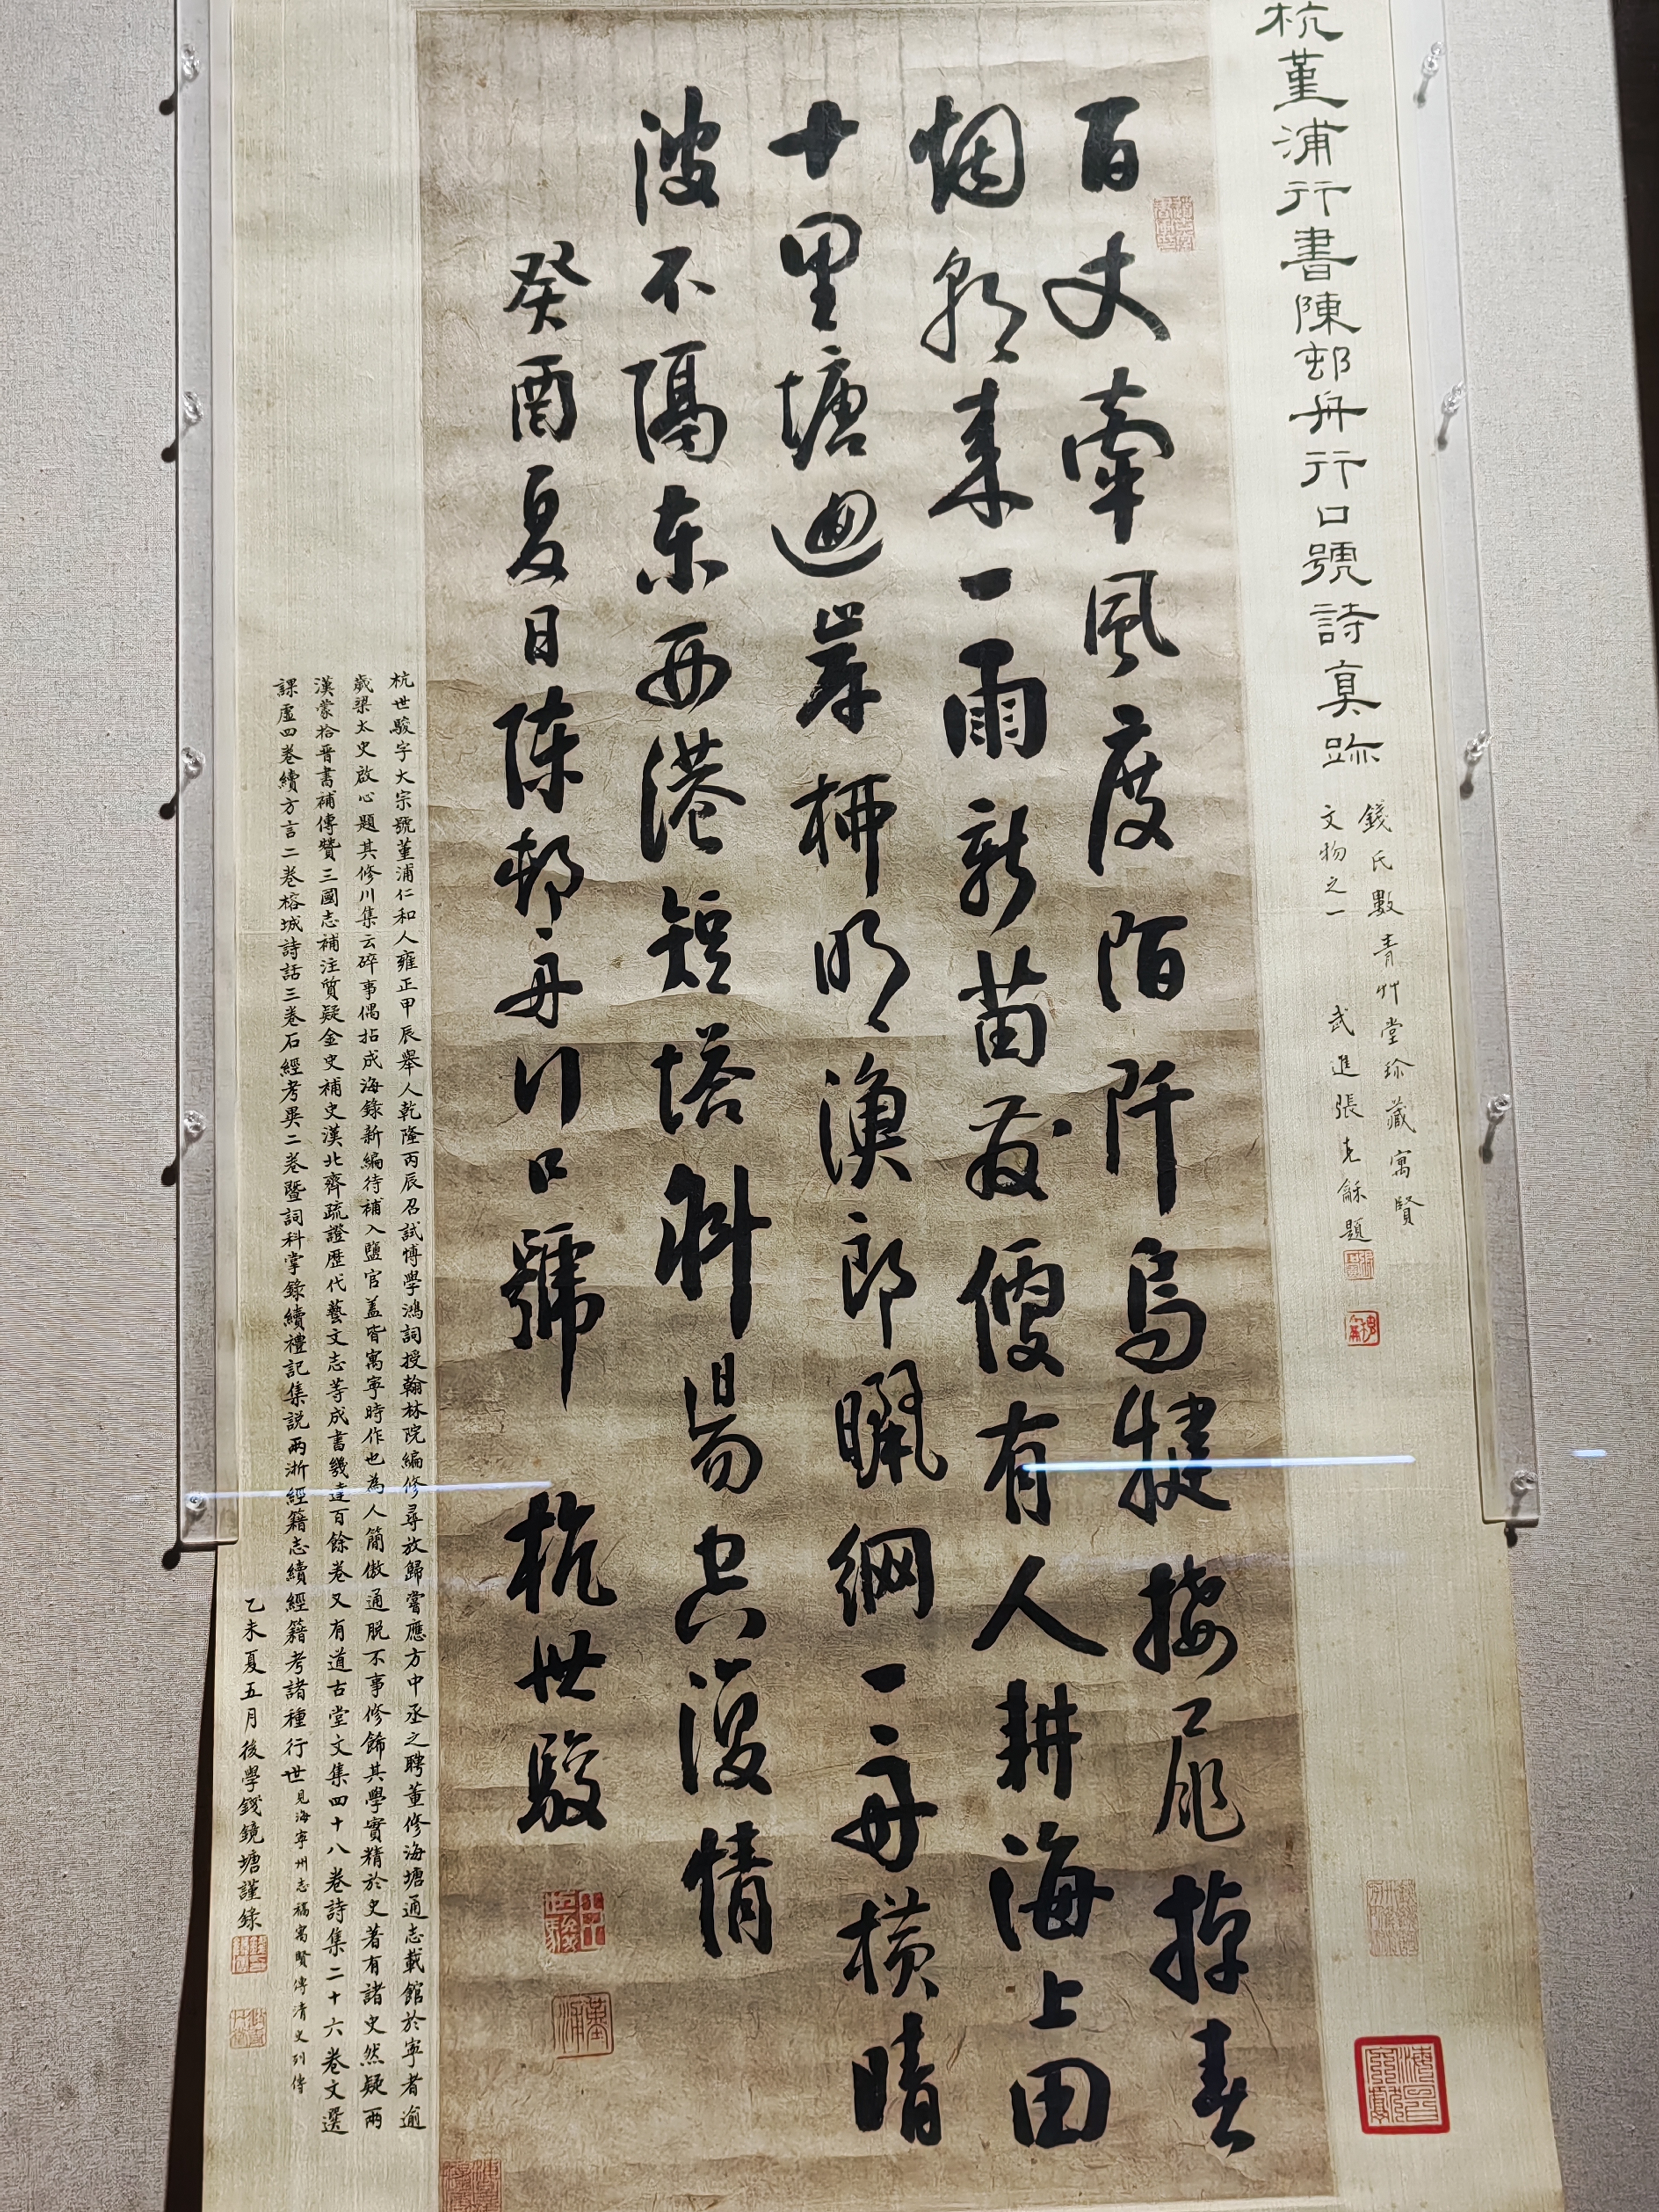 杭堇浦行書陳邨舟行口號詩真跡
錢氏數青艸堂珍藏寓賢
文物之一
武進張克龢題
百丈牽風度陌阡烏犍接尾掉春
烟朝來一雨新苗茂便有人耕海上田
十里塘迴岸柳明漁郎曬網一舟橫晴
波不隔東西港短塔斜陽空復情
癸酉夏日陳邨舟行口號 杭世駿
杭世駿字大宗號堇浦仁和人雍正甲辰舉人乾隆丙辰召試博學鴻詞授翰林院編修尋放歸嘗應方中丞之聘董修海塘通志載館於寧者逾
歲梁太史啟心題其修川集云碎事偶拈成海錄新編待補入鹽官蓋皆寓寧時作也為人簡傲通脫不事修飾其學實精於史著有諸史然疑兩
漢蒙拾晉書補傳贊三國志補注質疑金史補史漢北齊疏證歷代藝文志等成書幾達百餘卷又有道古堂文集四十八卷詩集二十六卷文選
課虛四卷續方言二卷榕城詩話三卷石經考異二卷暨詞科掌錄續禮記集說兩浙經籍志續經籍考諸種行世見海寧州志稿寓賢傳清史列傳
乙未夏五月後學錢鏡塘謹錄
堇浦